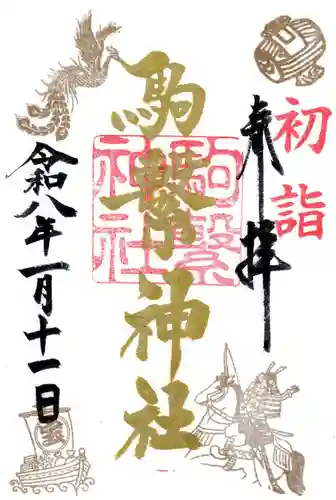 初詣
奉拝
駒繋神社
駒繋
神社
令和八年一月十一日